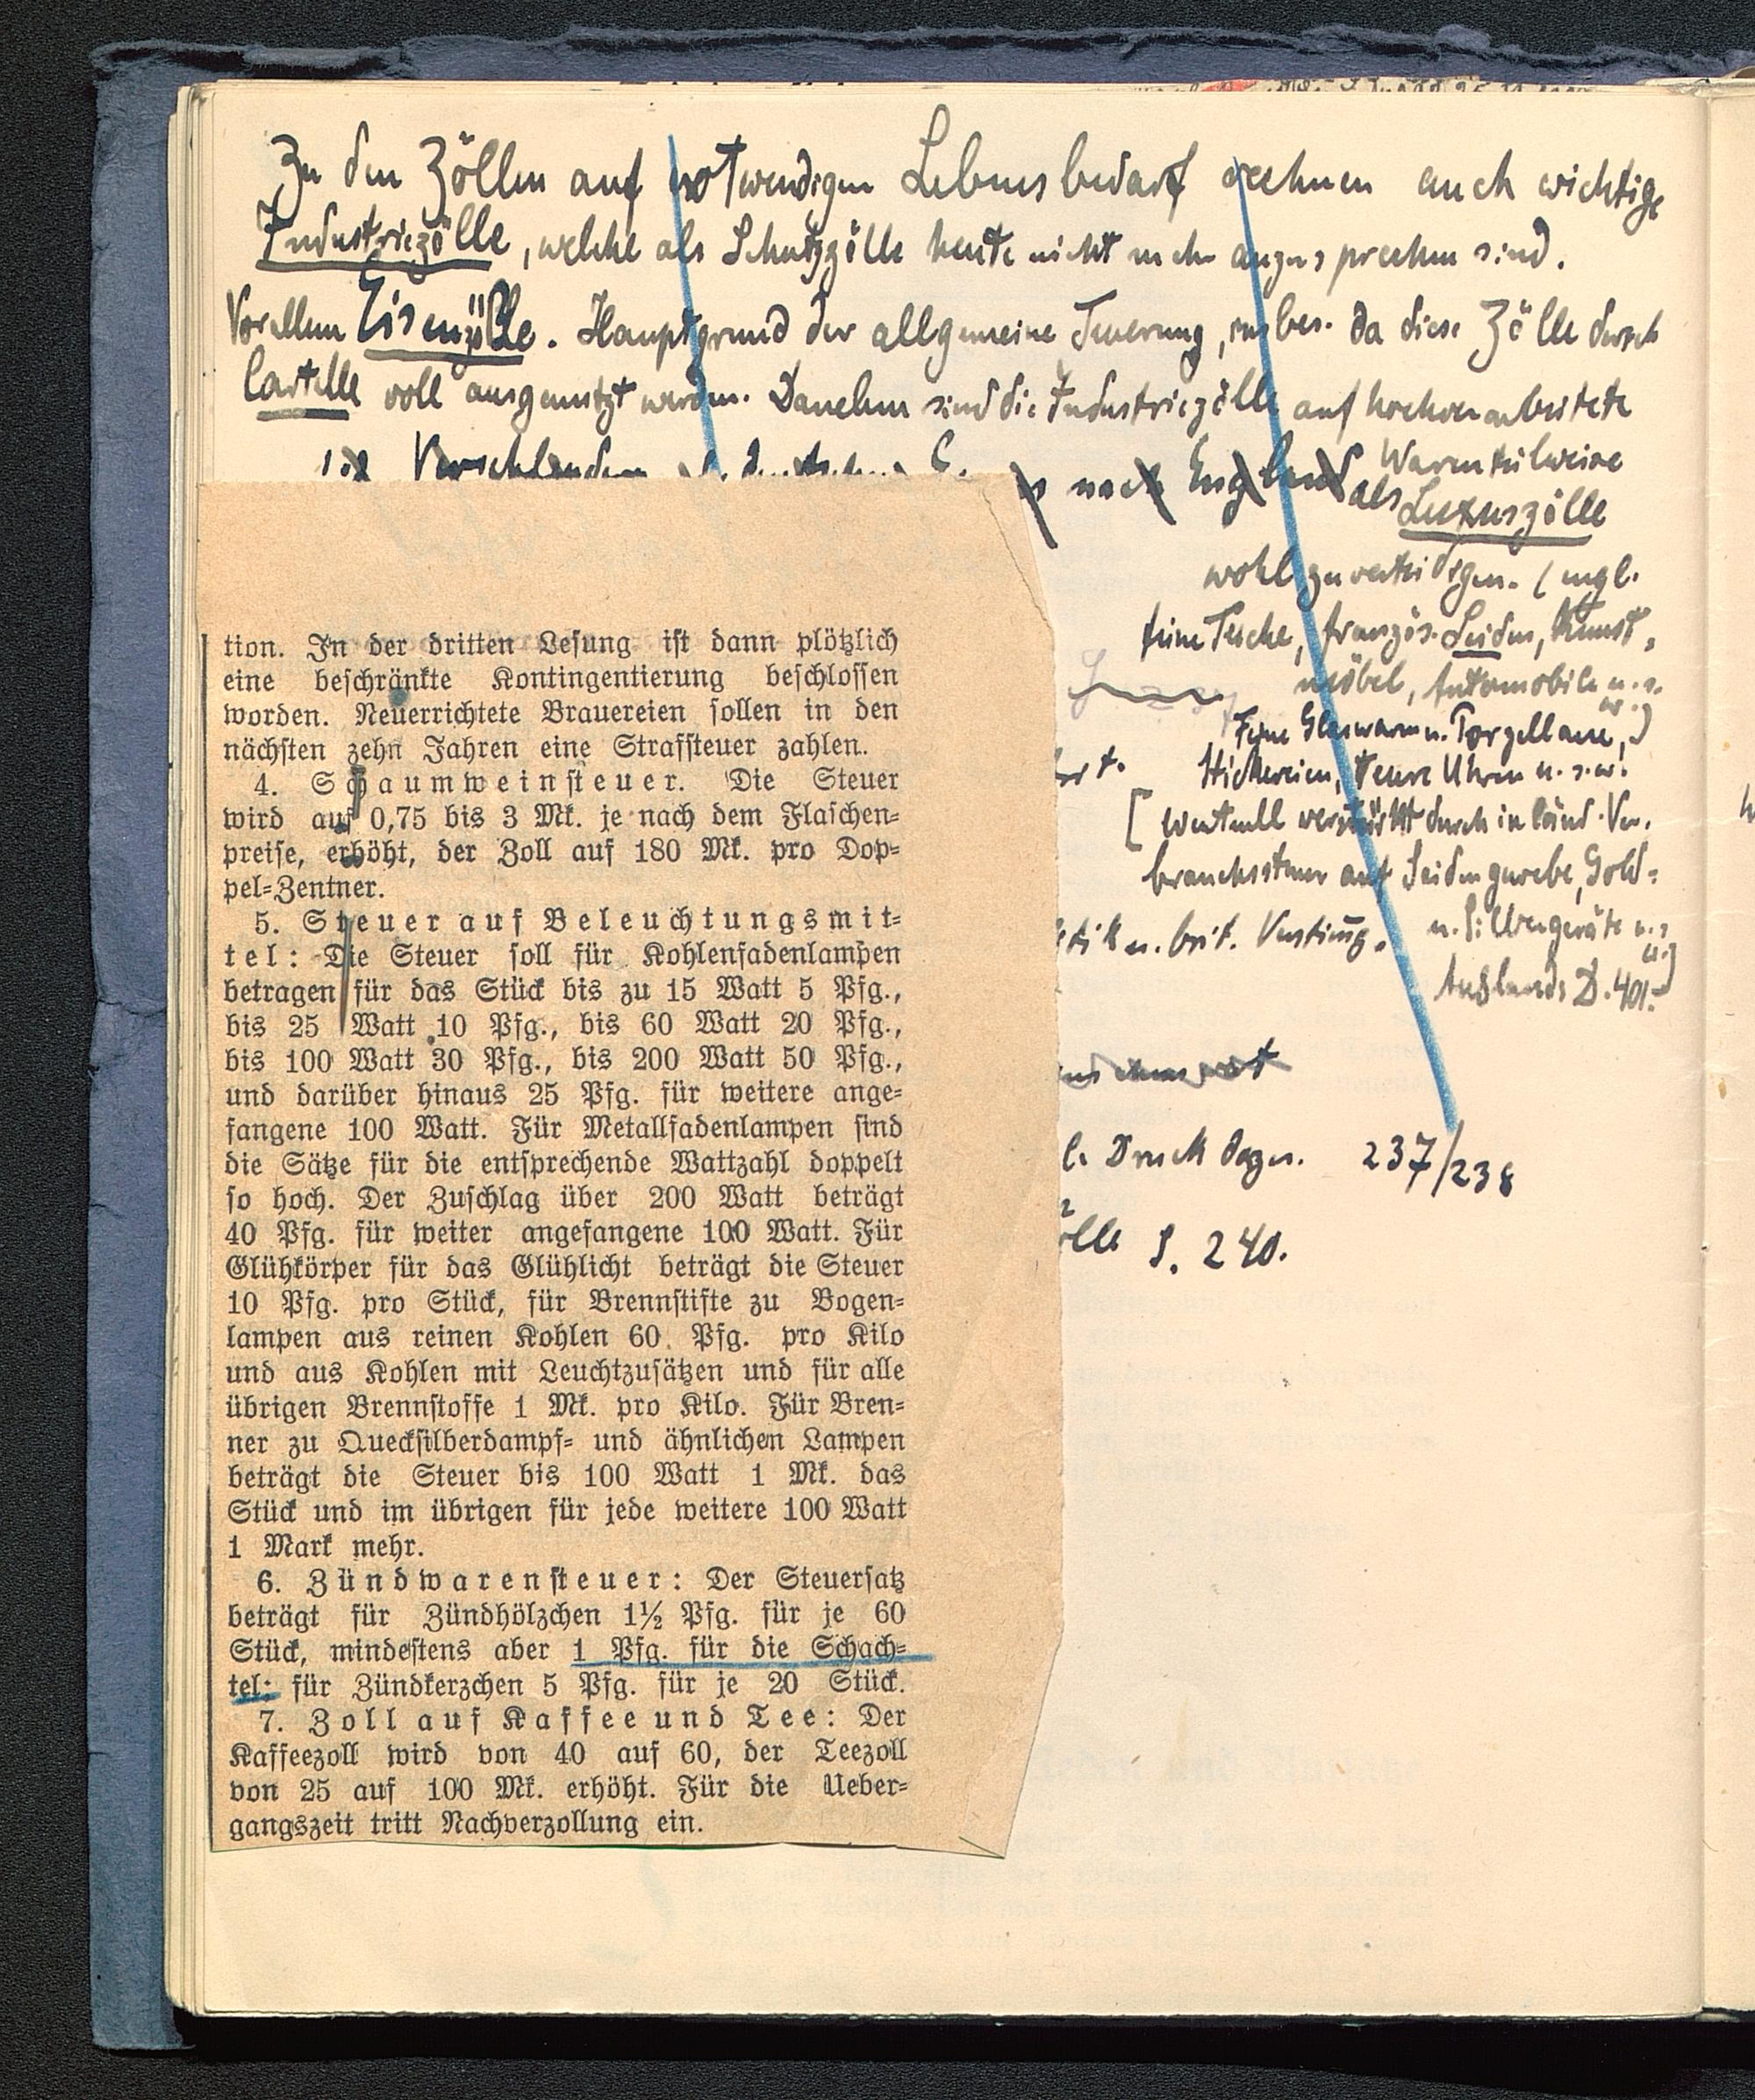 Zu den Zöllen auf notwendigen Lebensbedarf rechnen auch wichtige
Industriezölle, welche als Schutzzölle heute nicht mehr anzusprechen sind.
Vor allem Eisenzölle. Hauptgrund der allgemeine Teuerung, insbes. da diese Zölle durch
Cartelle voll ausgenutzt werden. Daneben sind die Industriezölle auf hochverarbeitete
Waren teilweise
nach England als Luxuszölle
wohl zu verteidigen. (engl.
feine Tuche, französ. Seiden, Kunst-
möbel, Automobile u.s.
w.)
Feine Glaswaren u. Porzellane,
Stickereien, teure Uhren u.s.w.
[eventuell verstärkt durch inländ. Ver-
brauchssteuer auf Seidengewebe, Gold-
u. Silbergeräte u.s.
w.]
Auslands D. 401.
u. brit.
Druck dazu. 237/238
S. 240.
tion. In der dritten Lesung ist dann plötzlich
eine beschränkte Kontingentierung beschlossen
worden. Neuerrichtete Brauereien sollen in den
nächsten zehn Jahren eine Strafsteuer zahlen.
4. Schaumweinsteuer. Die Steuer
wird auf 0,75 bis 3 Mk. je nach dem Flaschen-
preise, erhöht, der Zoll auf 180 Mk. pro Dop-
pel-Zentner.
5. Steuer auf Beleuchtungsmit-
tel: Die Steuer soll für Kohlenfadenlampen
betragen für das Stück bis zu 15 Watt 5 Pfg.,
bis 25 Watt 10 Pfg., bis 60 Watt 20 Pfg.,
bis 100 Watt 30 Pfg., bis 200 Watt 50 Pfg.,
und darüber hinaus 25 Pfg. für weitere ange-
fangene 100 Watt. Für Metallfadenlampen sind
die Sätze für die entsprechende Wattzahl doppelt
so hoch. Der Zuschlag über 200 Watt beträgt
40 Pfg. für weiter angefangene 100 Watt. Für
Glühkörper für das Glühlicht beträgt die Steuer
10 Pfg. pro Stück, für Brennstifte zu Bogen-
lampen aus reinen Kohlen 60 Pfg. pro Kilo
und aus Kohlen mit Leuchtzusätzen und für alle
übrigen Brennstoffe 1 Mk. pro Kilo. Für Bren-
ner zu Quecksilberdampf- und ähnlichen Lampen
beträgt die Steuer bis 100 Watt 1 Mk. das
Stück und im übrigen für jede weitere 100 Watt
1 Mark mehr.
6. Zündwarensteuer: Der Steuersatz
beträgt für Zündhölzchen 1½ Pfg. für je 60
Stück, mindestens aber 1 Pfg. für die Schach-
tel; für Zündkerzchen 5 Pfg. für je 20 Stück.
7. Zoll auf Kaffee und Tee: Der
Kaffeezoll wird von 40 auf 60, der Teezoll
von 25 auf 100 Mk. erhöht. Für die Ueber-
gangszeit tritt Nachverzollung ein.